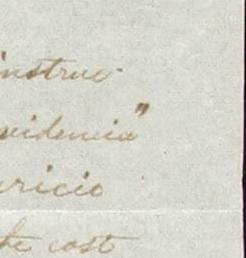 instruc-
videncia"
uricio
the cost